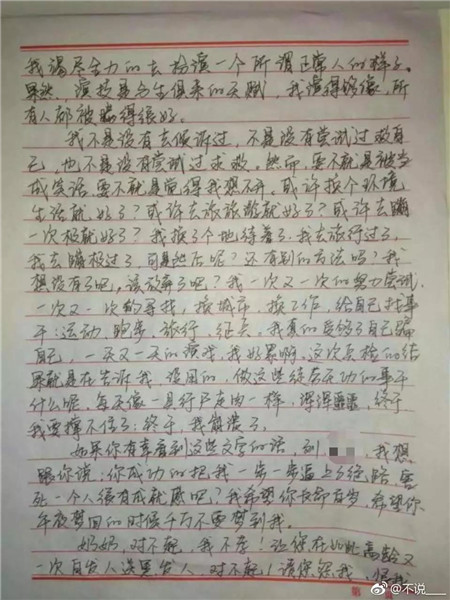 我竭尽全力的去扮演一个所谓正常人的样子。
果然，演技是与生俱来的天赋，我演得够像，所
有人都被瞒得很好。
我不是没有去倾诉过，不是没有尝试过救自
己，也不是没有尝试过求救。然而，要不就是被当
成笑话，要不就是觉得我想不开。或许换个环境
生活就好了？或许去旅旅游就好了？或许去蹦
一次极就好了？我换了个地待着了，我去旅行过了，
我去蹦极过了，可是然后呢？还有别的方法吗？我
想没有了吧，该放弃了吧？我一次又一次的努力尝试，
一次又一次的寻找，换城市，换工作，给自己找事
干：运动，跑步，旅行，我真的受够了自己骗
自己，一天又一天的演戏，我好累啊。这次的结
果就是在告诉我，没用的，做这些徒劳无功的事干
什么呢，每天像一具行尸走肉一样，浑浑噩噩，终于
我要撑不住了；终于，我崩溃了。
如果你有幸看到这些文字的话，刘，我想
跟你说：你成功的把我一步一步逼上了绝路，害
死一个人很有成就感吧？我希望你，希望你
午夜梦回的时候千万不要梦到我。
奶奶，对不起，我不孝！让您在如此高龄又
一次白发人送黑发人，对不起！请您恕我
@不说___